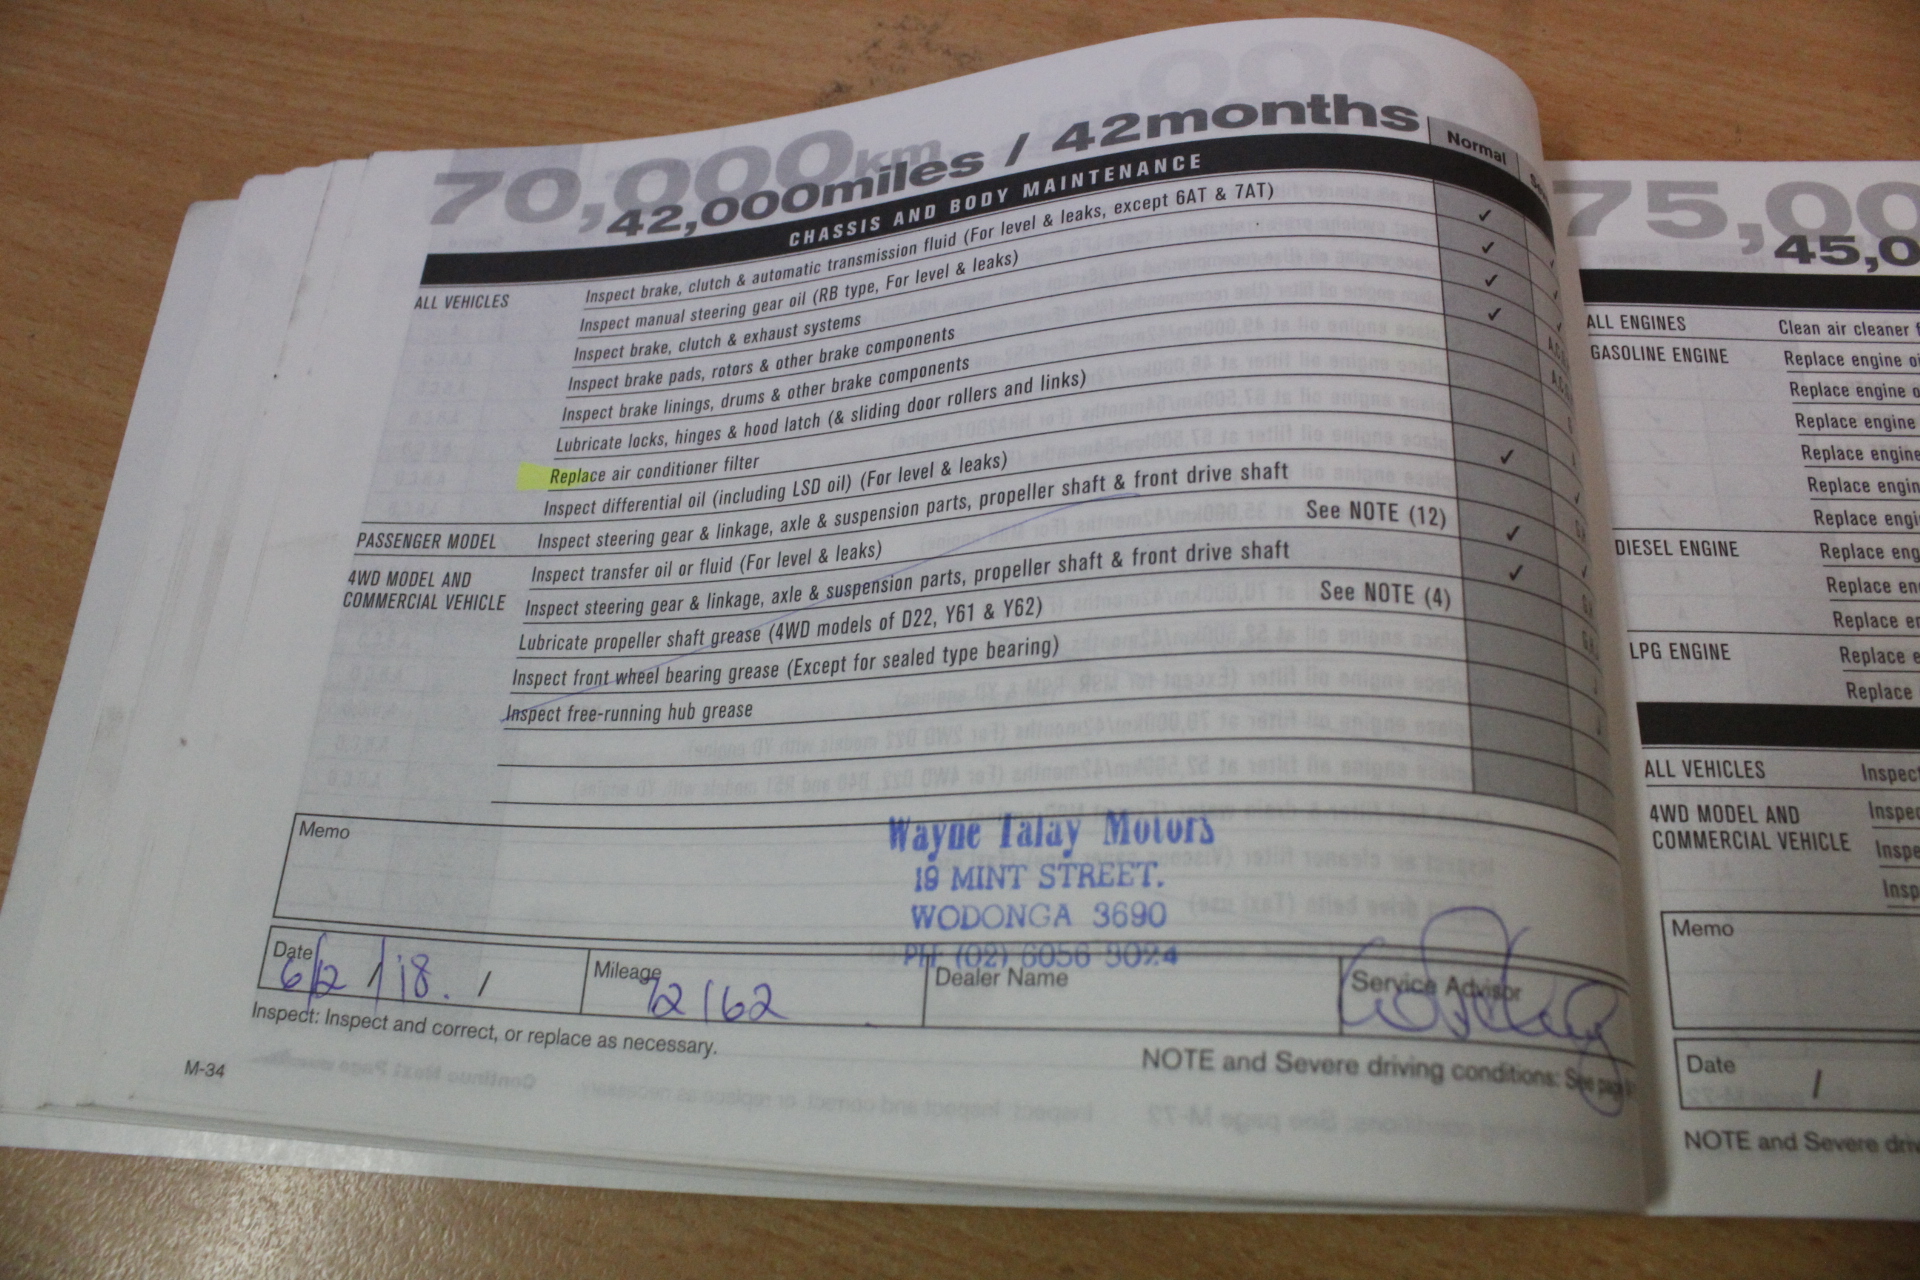 70,000km
42,000miles / 42months
Normal
CHASSIS AND BODY MAINTENANCE
ALL VEHICLES
Inspect brake, clutch & automatic transmission fluid (For level & leaks, except 6AT & 7AT) ✓
Inspect manual steering gear oil (RB type, For level & leaks) ✓
Inspect brake, clutch & exhaust systems ✓
Inspect brake pads, rotors & other brake components ✓
Inspect brake linings, drums & other brake components
Lubricate locks, hinges & hood latch (& sliding door rollers and links)
Replace air conditioner filter
Inspect differential oil (including LSD oil) (For level & leaks) ✓
PASSENGER MODEL
Inspect steering gear & linkage, axle & suspension parts, propeller shaft & front drive shaft
See NOTE (12)
4WD MODEL AND
COMMERCIAL VEHICLE
Inspect transfer oil or fluid (For level & leaks) ✓
Inspect steering gear & linkage, axle & suspension parts, propeller shaft & front drive shaft ✓
See NOTE (4)
Lubricate propeller shaft grease (4WD models of D22, Y61 & Y62)
Inspect front wheel bearing grease (Except for sealed type bearing)
Inspect free-running hub grease
Memo
Wayne Talay Motors
19 MINT STREET.
WODONGA 3690
PH: (02) 6056 9024
Date
6/2/18. /
Mileage
72162
Dealer Name
Service Advisor
Inspect: Inspect and correct, or replace as necessary.
NOTE and Severe driving conditions: See page
M-34
75,00
45,0
ALL ENGINES
Clean air cleaner
GASOLINE ENGINE
Replace engine
Replace engine
Replace engine
Replace engine
Replace
Replace
DIESEL ENGINE
Replace
Replace
Replace
LPG ENGINE
Replace
Replace
ALL VEHICLES
Inspect
4WD MODEL AND
COMMERCIAL VEHICLE
Memo
Date
/
NOTE and Severe